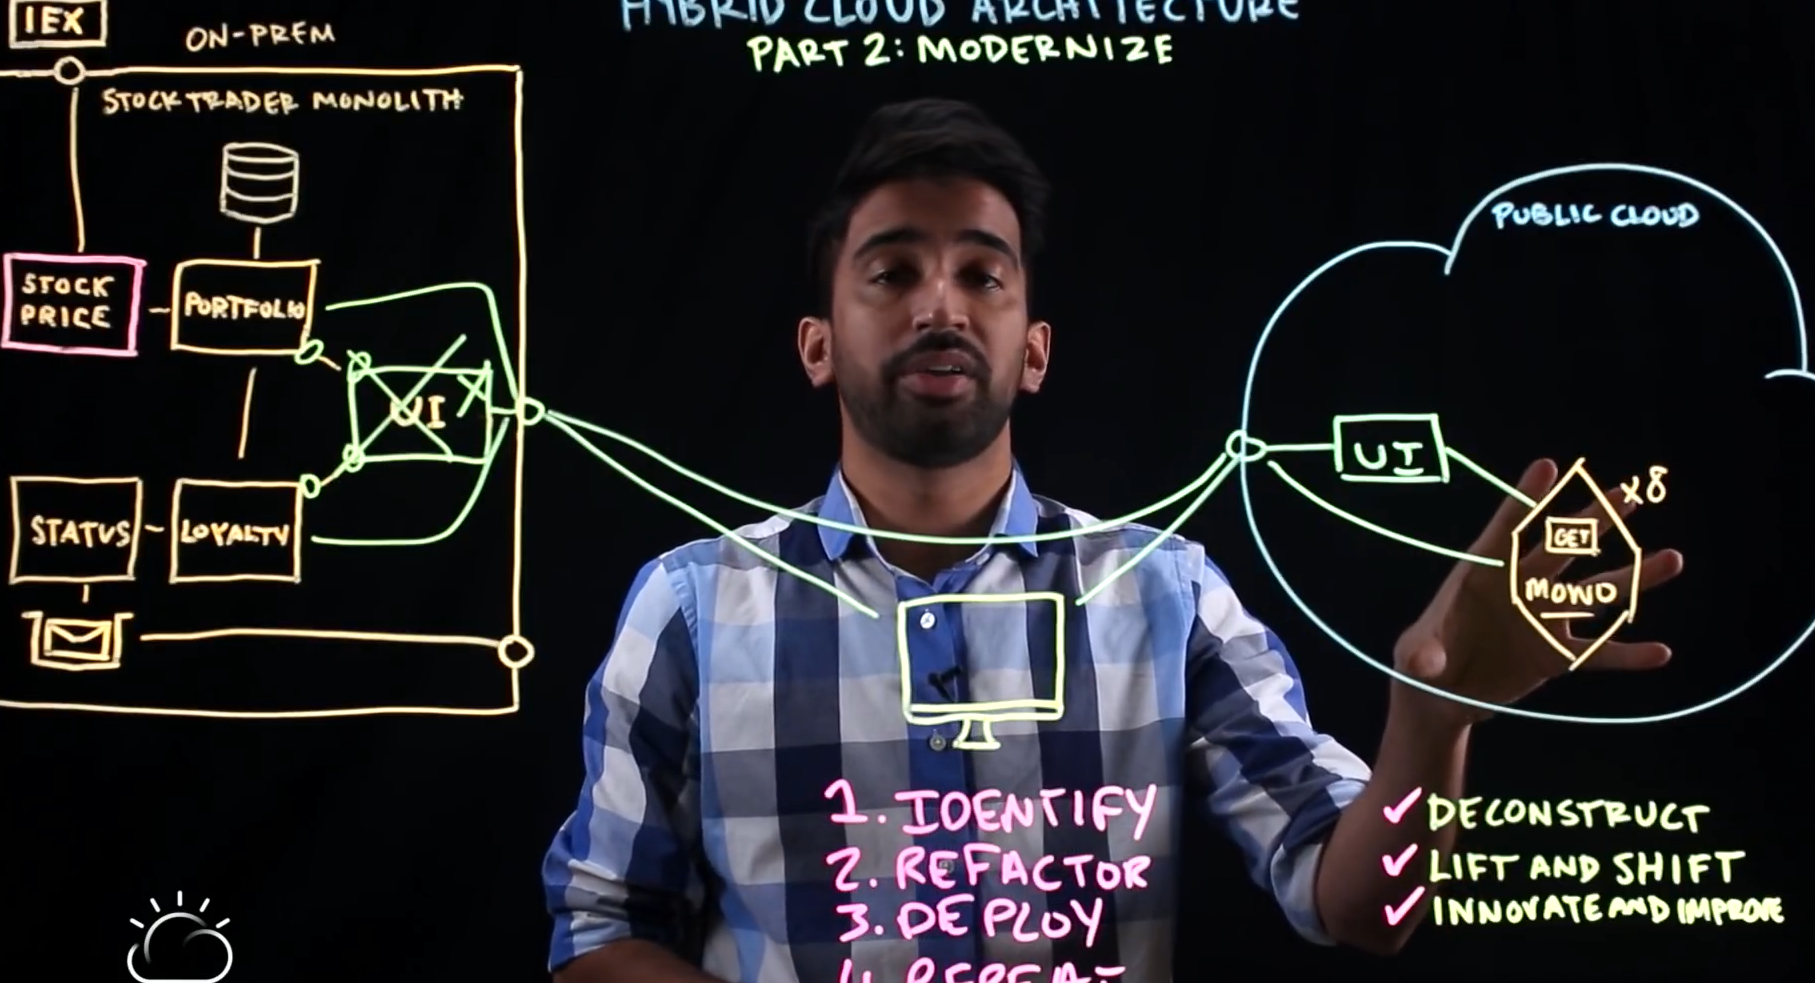 HYBRID CLOUD ARCHITECTURE
PART 2: MODERNIZE
IEX
ON-PREM
STOCK TRADER MONOLITH
STOCK
PRICE
PORTFOLIO
UI X
STATUS
LOYALTY
PUBLIC CLOUD
UI
X8
GET
MONO
1. IDENTIFY
2. REFACTOR
3. DEPLOY
4. REPEAT
✓ DECONSTRUCT
✓ LIFT AND SHIFT
✓ INNOVATE AND IMPROVE